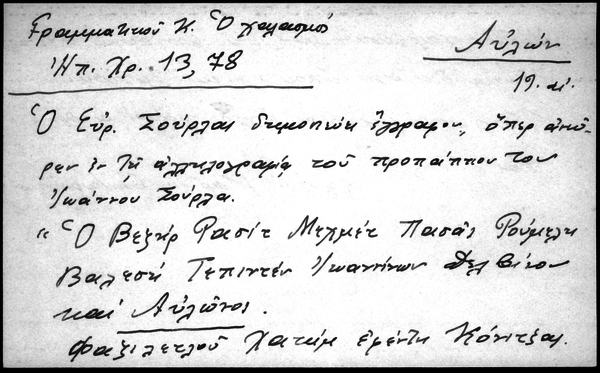 Γραμματικοῦ Κ. Ὁ χαλασμός
Ἠπ. Χρ. 13, 78
Αὐλών
19. αἰ.
Ὁ Εὐρ. Σούρλας δημοσιεύει ἔγγραφον, ὅπερ ἀνεῦ-
ρεν ἐν τῇ ἀλληλογραφίᾳ τοῦ προπάππου του
Ἰωάννου Σούρλα.
" Ὁ Βεζὴρ Ρασὶτ Μεχμὲτ Πασᾶς Ρούμελη
Βαλεσῆ Τεπιντέν Ἰωαννίνων Δελβίνου
καί Αὐλῶνος.
Φαζιλετλοῦ Χατὶμ ἐφέντη Κόνιτζας.